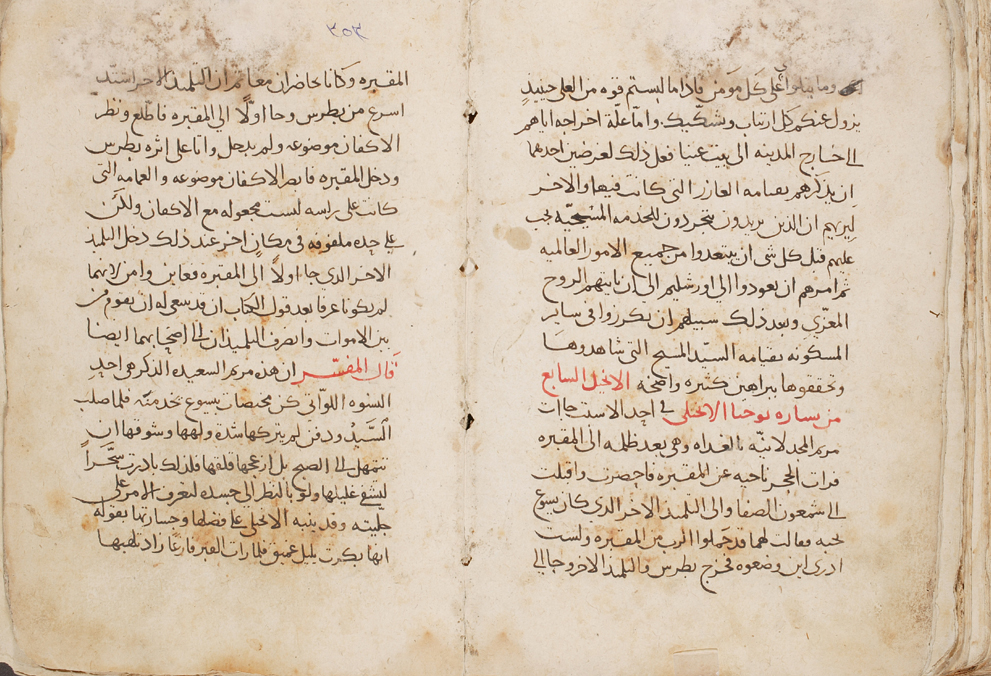 وما يتلوا على كل مومن فاذا ما لبستم قوه من العلى حينيذ
يزول عنكم كل ارتياب وتشكيك واما علة اخراجه اياهم
الى خارج المدينه الى بيت عنيا فعل ذلك لغرضين احدهما
ان يذكرهم بقيامه العازر التى كانت فيها والاخر
ليريهم ان الذين يريدون يتجردون للخدمه المسيحيه يجب
عليهم قبل كل شى ان يبتعدوا من جميع الامور العالميه
ثم امرهم ان يعودوا الى اورشليم الى ان ياتيهم الروح
المعزى وبعد ذلك سبيلهم ان يكرزوا فى ساير
المسكونه بقيامه السيد المسيح التى شاهدوها
وتحققوها ببراهين كثيره واضحه الانجيل السابع
من بشاره يوحنا الانجيلى فى احد الاسبت جات
مريم المجدلانيه بالغداه وهى بعد ظلمه الى المقبره
فرات الحجر ناحيه عن المقبره فاحضرت واقبلت
الى سمعون الصفا والى التلميذ الاخر الذى كان يسوع
يحبه وقالت لهما قد حملوا الرب من المقبره ولست
ادرى اين وضعوه فخرج بطرس والتلميذ الاخر وجا الى
٣٥٣
المقبره وكانا يحاضران معا ثم ان التلميذ الاخر اشتد
اسرع من بطرس وجا اولًا الى المقبره فاطلع ونظر
الاكفان موضوعه ولم يدخل واتا على اثره بطرس
ودخل المقبره فابصر الاكفان موضوعه والعمامه التى
كانت على راسه ليست مجعوله مع الاكفان ولكن
على حده ملفوفه فى مكان اخر عند ذلك دخل التلميذ
الاخر الذى جا اولاً الى المقبره فعاين وامن لانهما
لم يكونا عرفا بعد قول الكتاب ان قد ينبغى له ان يقوم من
بين الاموات وانصرف التلميذان الى اصحابهما ايضا
قال المفسر ان هذه مريم السعيده الذكر هى احد
النسوه اللواتى كن مختصات بيسوع بخدمته فلما صلب
السيد ودفن لم يتركها شدة ولهها وشوقها ان
تتمهل الى الصبح بل ازعجها قلقها فلذلك بادرت سحراً
ليشفى غليلها ولو بالنظر الى جسده لتعرف الامر على
جليته وقد ينبيه الانجيلى على فضلها وجسارتها بقوله
انها بكرت بليل عميق فلما رات القبر فارغا زاد تلهبها